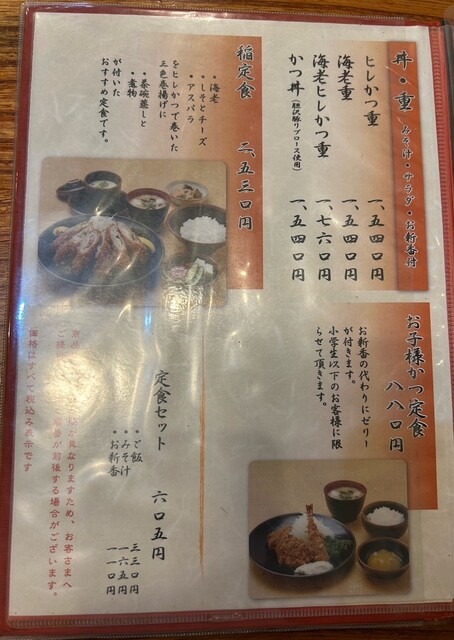 丼・重 みそ汁・サラダ・お新香付
ヒレかつ重 一、五四〇円
海老重 一、五四〇円
海老ヒレかつ重 一、七六〇円
かつ丼(胆沢豚リブロース使用) 一、五四〇円
稲定食 二、五三〇円
・海老
・しそとチーズ
・アスパラ
をヒレかつで巻いた
三色巻揚げに
・茶碗蒸しと
・煮物
が付いた
おすすめ定食です。
お子様かつ定食
八八〇円
お新香の代わりにゼリー
が付きます。
小学生以下のお客様に限
らせて頂きます。
定食セット 六〇五円
・ご飯 三三〇円
・みそ汁 一六五円
・お新香 一一〇円
異なりますため、お客さまへ
前後する場合がございます。
価格はすべて税込み表示です